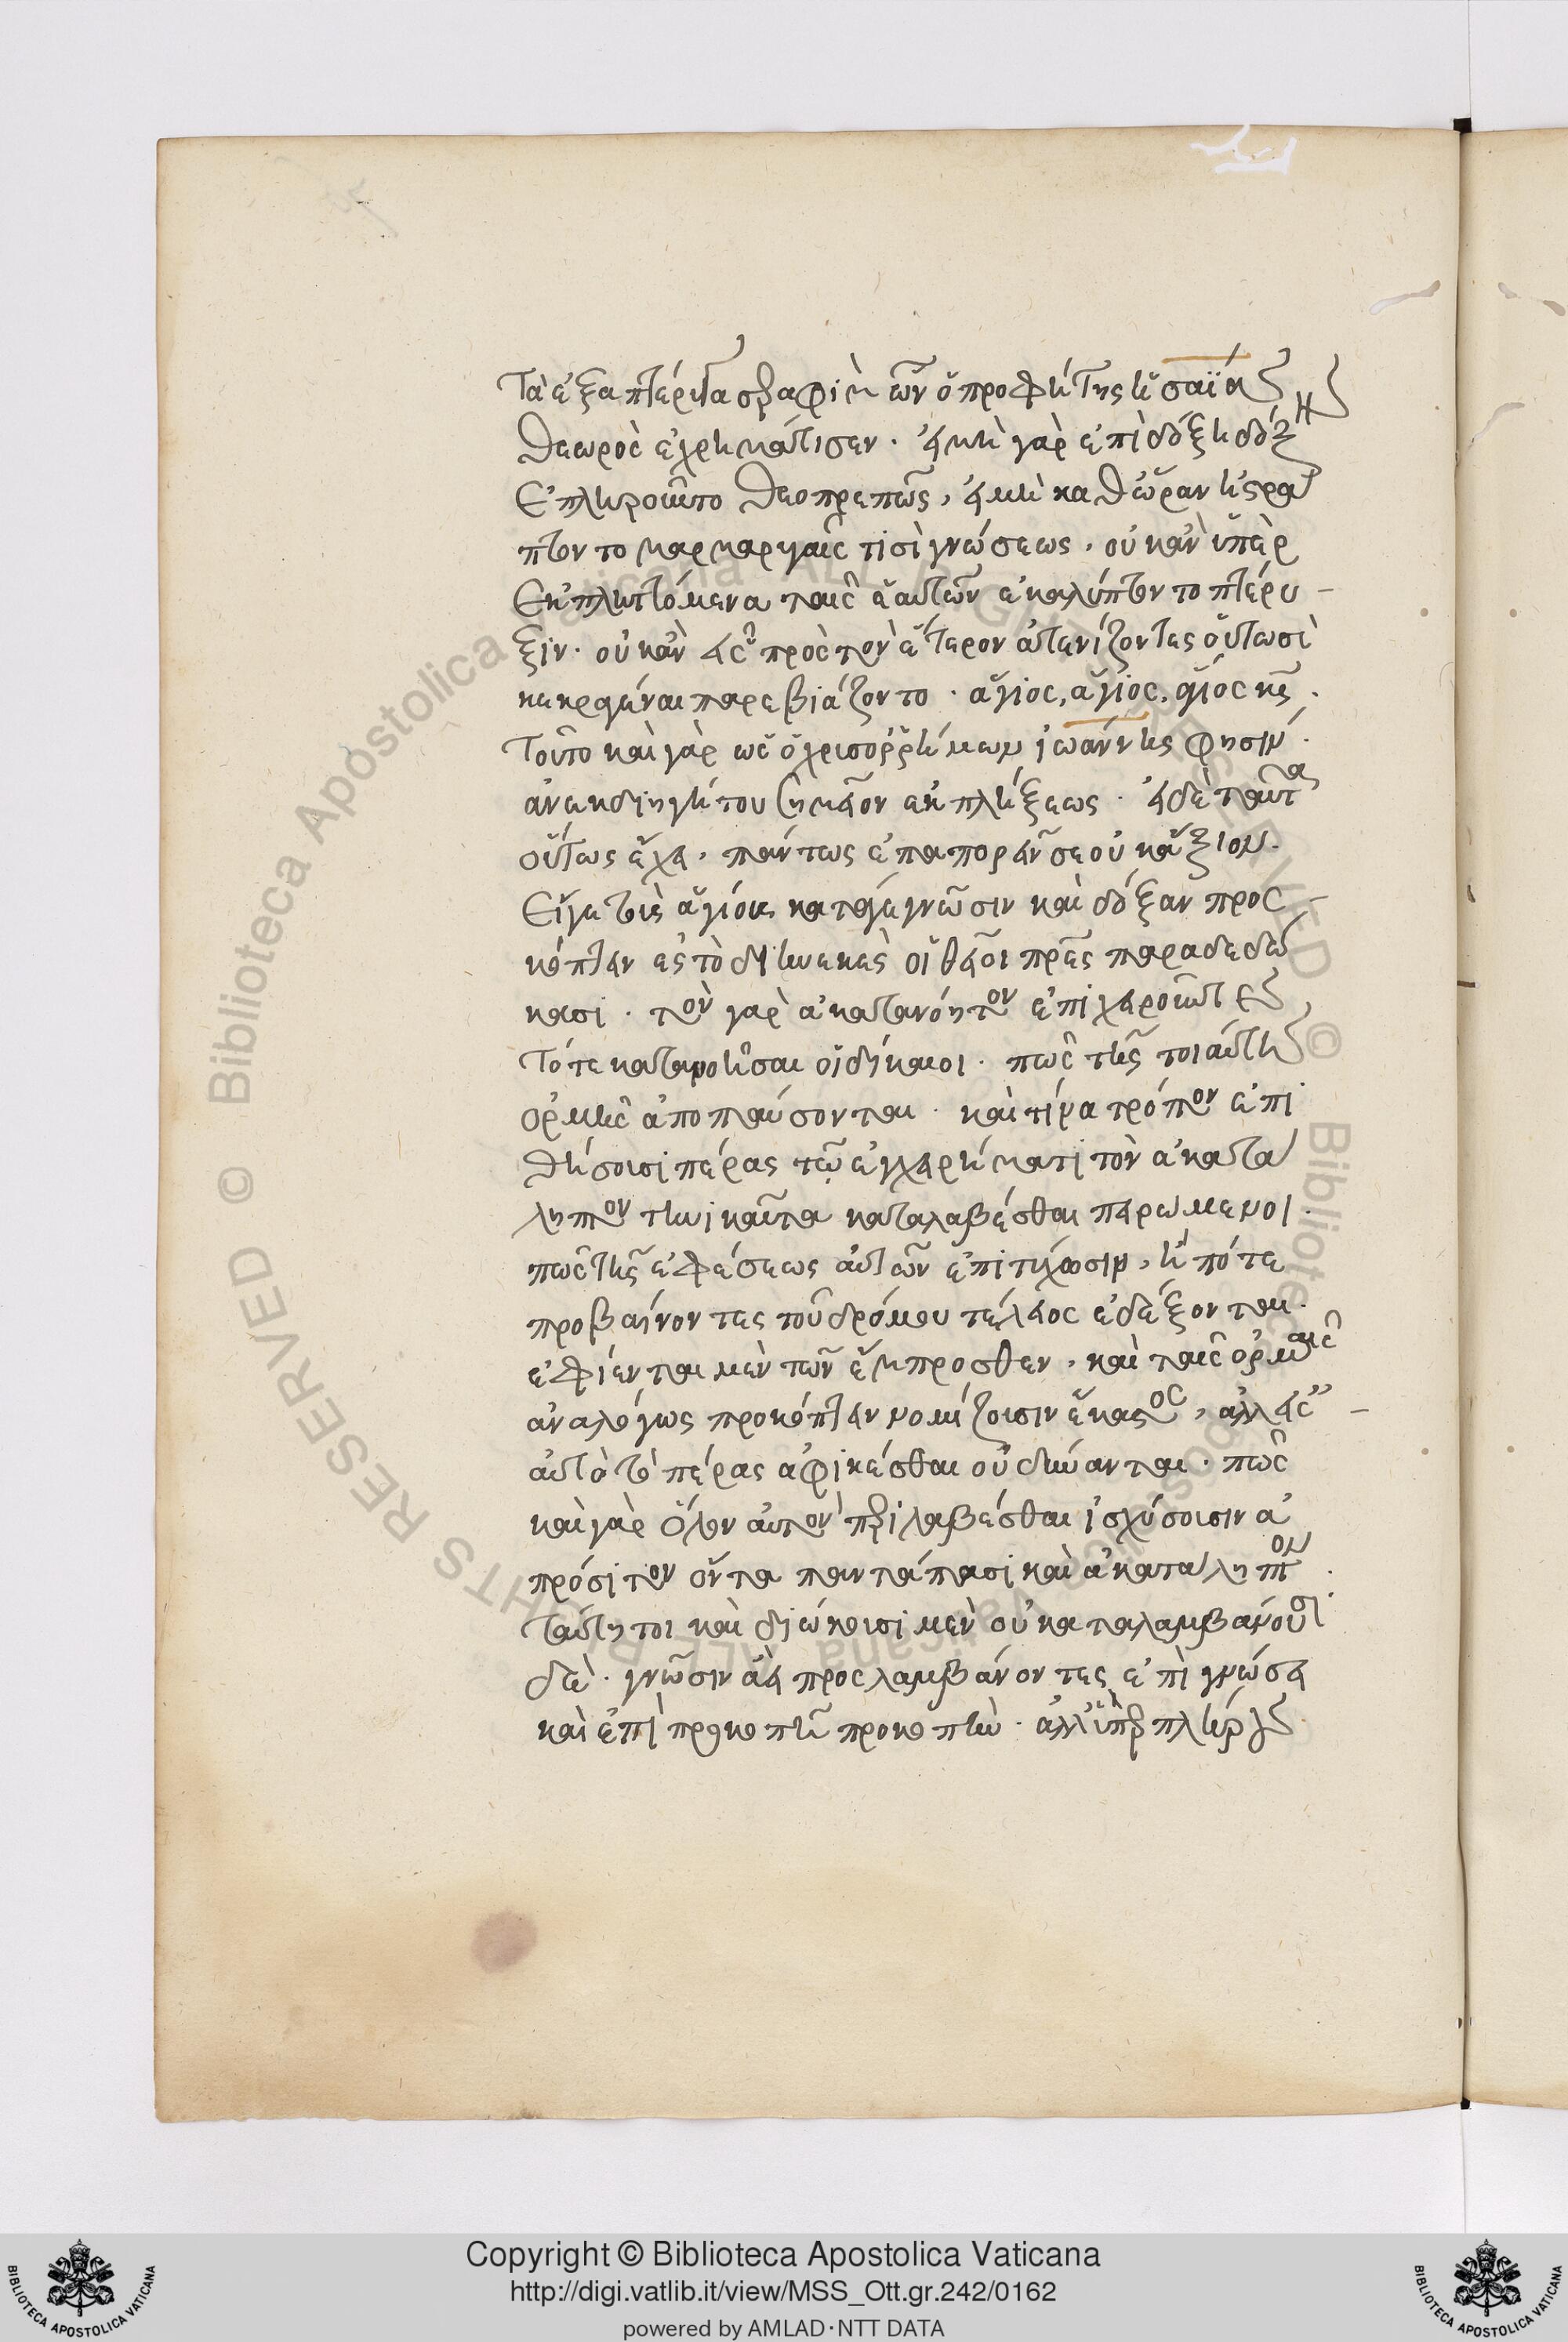 Τὰ ἑξαπτέρυγα σεραφὶμ ὧν ὁ προφήτης ἡσαΐας
θεωρὸς ἐχρημάτισεν. εἰ μὴ γὰρ ἐπὶ δόξῃ δόξης
ἐπληροῦντο θεοπρεπῶς, εἰ μὴ καθ' ὥραν ἠστρά
πτοντο μαρμαρυγαῖς τισὶ γνώσεως, οὐκ ἂν ὑπὲρ
ἐκπληττόμενα ταῖς ἑαυτῶν ἐκαλύπτοντο πτέρυ-
ξιν. οὐκ ἂν εἷς πρὸς τὸν ἕτερον ἀτενίζοντες οὕτωσὶ
κεκραγέναι παρεβιάζοντο. ἅγιος, ἅγιος, ἅγιος κς.
Τοῦτο καὶ γὰρ ὡς ὁ χρισορρήμων ἰωάννης φησίν.
ἀνεκδιηγήτου σημεῖον ἐκπλήξεως. εἰ δὲ ταῦτα
οὕτως ἔχει, πάντως ἐπαπορεῖν σε οὐκ ἄξιον.
Εἴγε τοὺς ἁγίους κατά γε γνῶσιν καὶ δόξαν προσ-
κόπτειν ἐς τὸ διηνεκὲς οἱ θεῖοι πρες παραδεδώ
κασι. τὸν γὰρ ἀκατανόητον ἐπιχειροῦντες
Τότε κατανοῆσαι οἱ δίκαιοι. πῶς τῆς τοιαύτης
ὁρμῆς ἀποπαύσονται. καὶ τίνα τρόπον ἐπι
θήσουσι πέρας τῷ ἐγχειρήματι τὸν ἀκατά
ληπτον τηνικαῦτα καταλαβέσθαι πειρώμενοι.
πῶς τῆς ἐφέσεως αὐτῶν ἐπιτύχωσιν, ἢ πότε
προβαίνοντες τοῦ δρόμου τέλειος ἐδέξονται.
ἐφίενται μὲν τῶν ἔμπροσθεν, καὶ ταῖς ὁρμαῖς
ἀναλόγως προκόπτειν νομίζουσιν ἕκαστος, ἀλλ' εἰς
αὐτὸ τὸ πέρας ἀφικέσθαι οὐ δύνανται. πῶς
καὶ γὰρ ὅλον αὐτὸν περιλαβέσθαι ἰσχύσουσιν ἀ
πρόσιτον ὄντα παντάπασι καὶ ἀκατάληπτον.
Ταύτητοι καὶ διώκουσι μὲν οὐ καταλαμβάνουσι
δὲ. γνῶσιν ἀεὶ προσλαμβάνοντες ἐπὶ γνώσει
καὶ ἐπὶ προκοπῇ προκοπὴν. ἀλλ' ὑπὲρ πλήρης